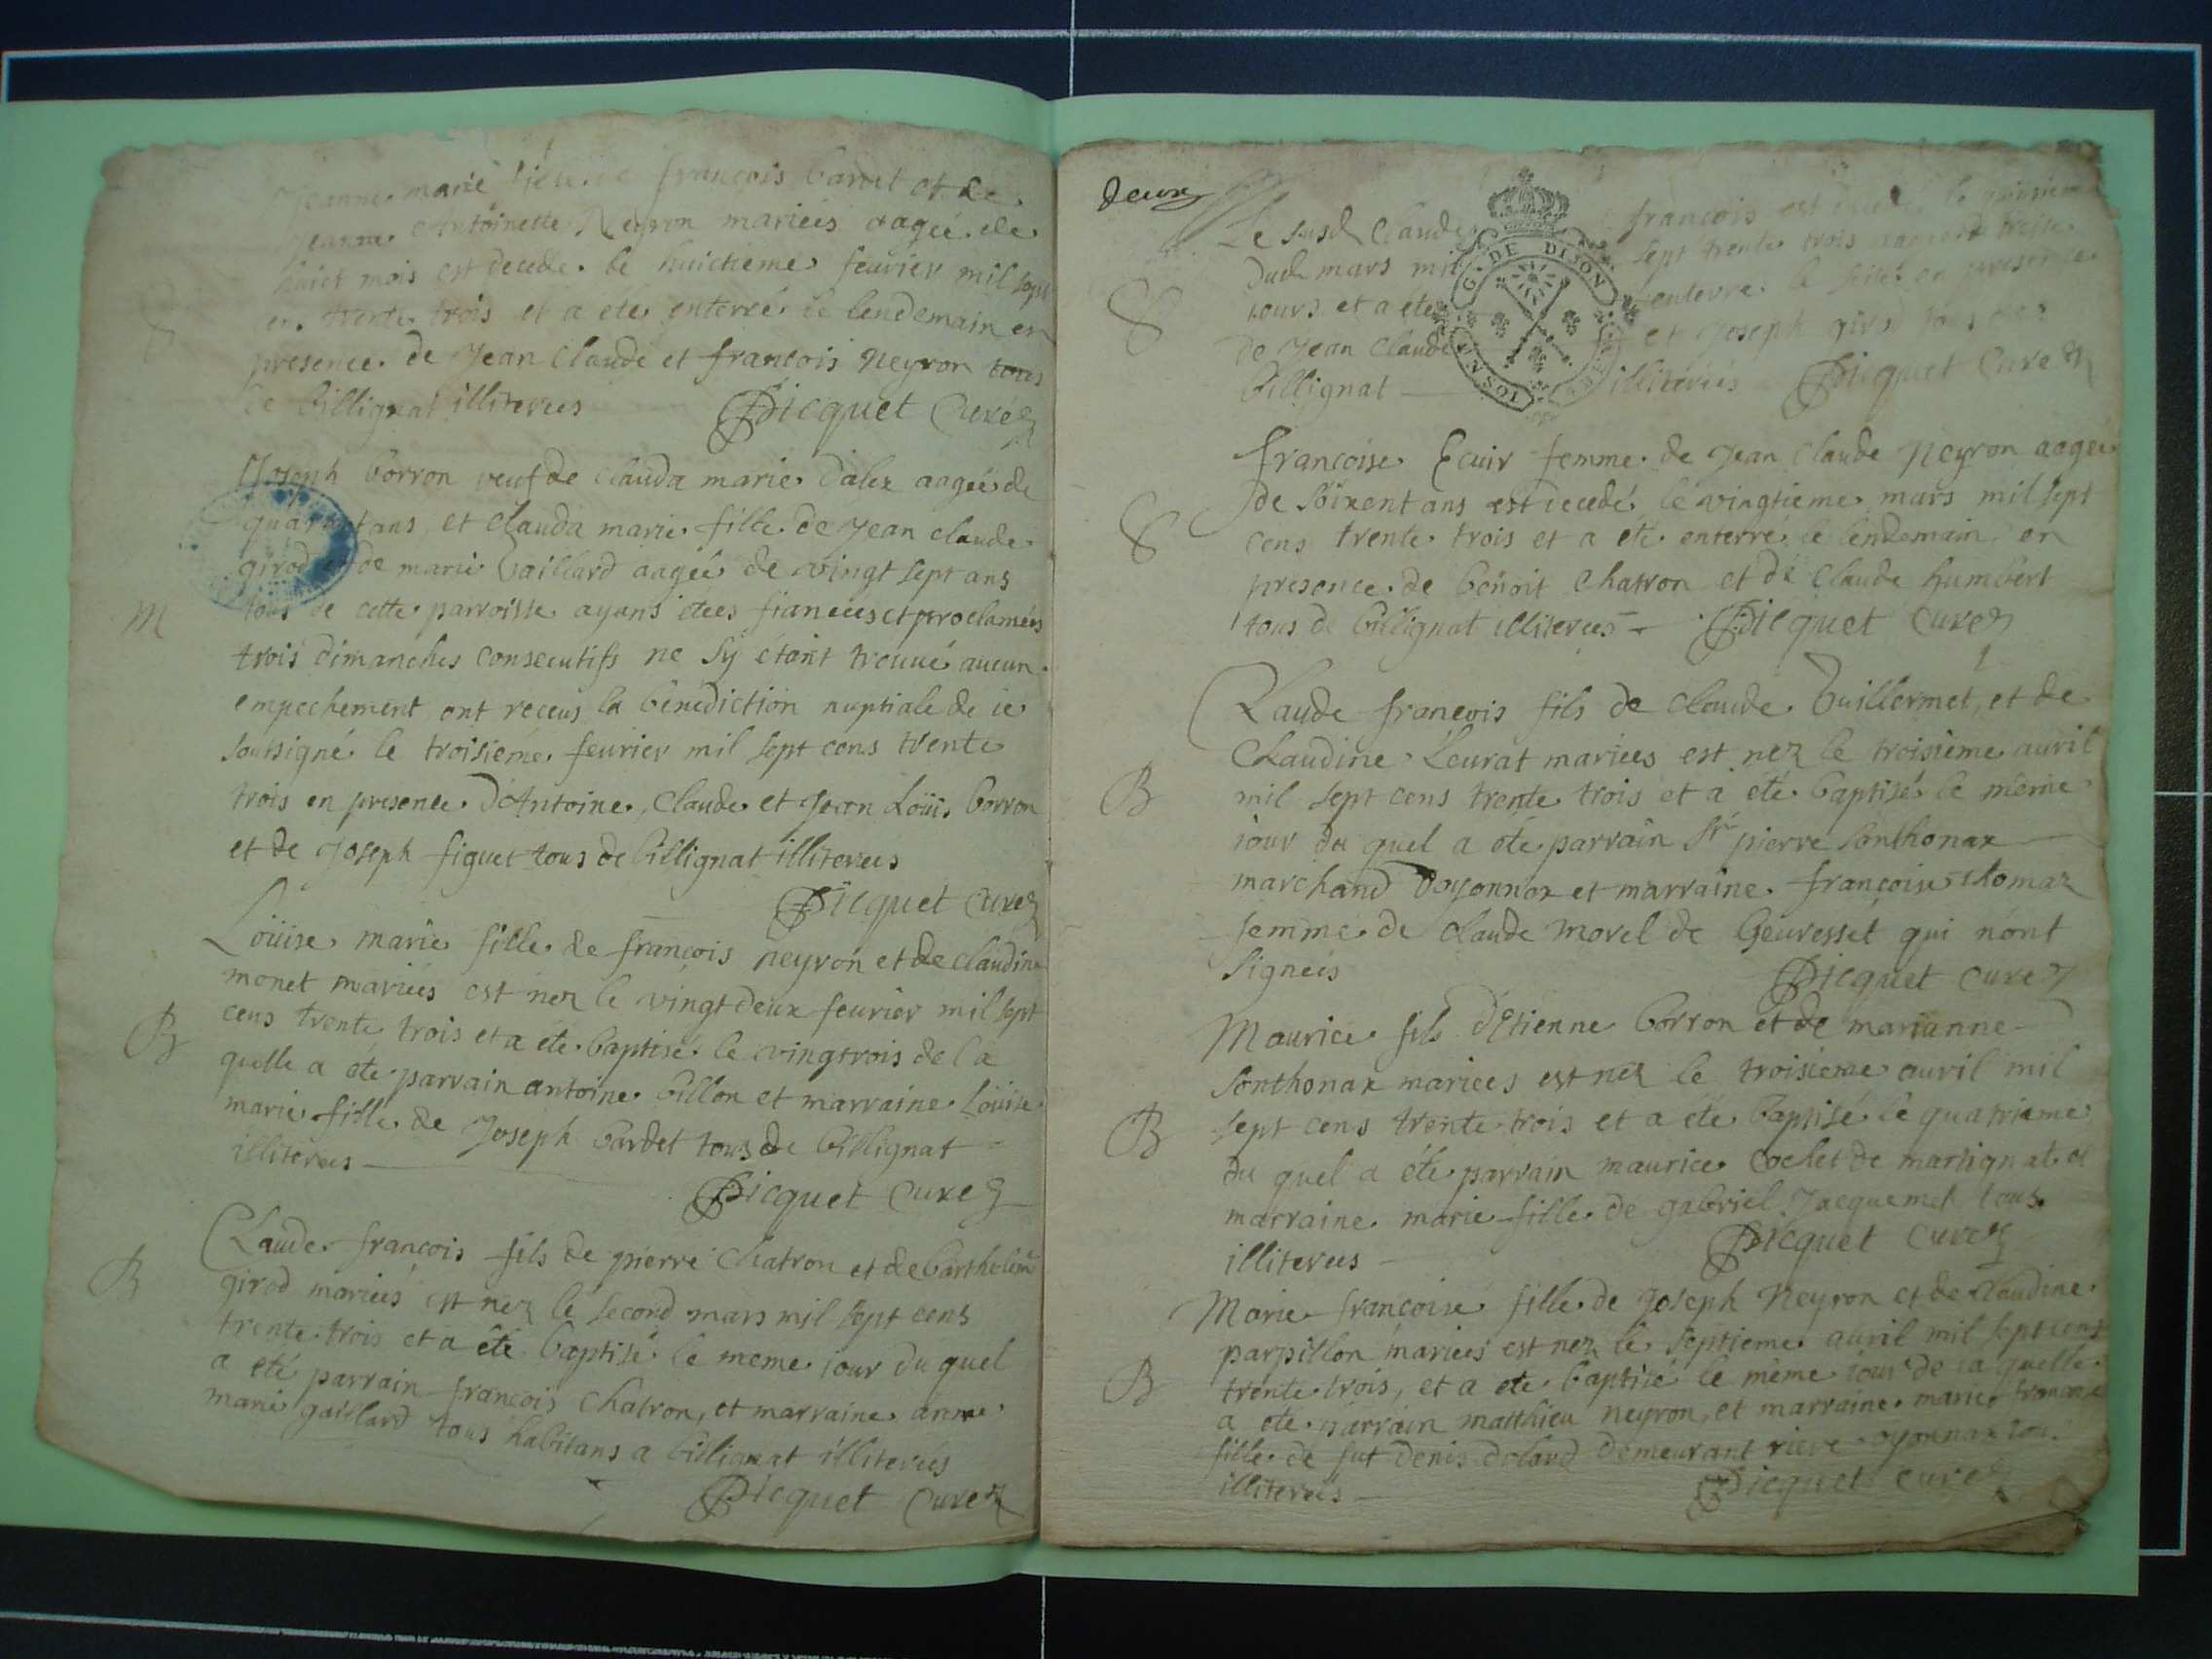 Jeanne marie fille de françois bardet et de
jeanne Antoinette Neyron mariéés aagéé de
huict mois est decedé le huictieme feurier mil sept
cens trente trois et a eté enterré le lendemain en
presence de Jean Claude et françois neyron tous
de billignat illiterees Picquet Curé
S
Joseph borron veuf de clauda marie dalex aageé de
quarent ans et clauda marie fille de jean claude
girod et de marie gaillard aageé de vingt sept ans
tous de cette parroisse ayans étées fiancées et proclamées
M
trois dimanches consecutifs ne s'y étant trouué aucun
empechement ont receus la bénédiction nuptiale de ie
soursigné le troisiéme feurier mil sept cens trente
trois en presence d'Antoine, Claude et Jean Loüis borron
et de Joseph figuet tous de billignat illiterees
Picquet Curé
Loüise marie fille de françois neyron et de claudine
monet mariéés est nez le vingt deux feurier mil sept
cens trente trois et a été baptisé le vingtrois de la
B
quelle a été parrain antoine billon et marraine Loüise
marie fille de Joseph bardet tous de billignat
illiterees
Picquet Curé
Claude françois fils de pierre Chatron et de barthelem
girod mariéés est nez le second mars mil sept cens
B
trente trois et a été baptisé le meme iour du quel
a eté parrain françois Chatron, et marraine anne
marie gaillard tous habitans a billignat illiterées
Picquet Curé
deux
G. DE DIJON
Le susd Claude françois est
dud mars mil sept trente trois
iours et a eté enterre le en presence
S
de Jean Claude et Joseph tous
billignat illiterées Picquet Curé
françoise Ecuir femme de Jean Claude Neyron aageé
de soixent ans est decedé le vingtieme mars mil sept
S
cens trente trois et a eté enterré le lendemain en
presence de benoit Chatron et de Claude humbert
tous de billignat illiterees Picquet Curé
Claude françois fils de claude Guillermet, et de
Claudine Leurat mariees est nez le troisième auril
B
mil sept cens trente trois et a été baptisé le même
iour du quel a eté parrain Sr pierre Sonthonax
marchand doyonnax et marraine françoise thomaz
femme de claude morel de Geuresset qui n'ont
signeés Picquet Curé
Maurice fils d'Etienne borron et de marianne
Sonthonax mariees est nez le troisieme auril mil
B
sept cens trente trois et a été baptisé le quatrieme
du quel a été parrain maurice Cochet de martignat et
marraine marie fille de gabriel Jacquemet tous
illiterees Picquet Curé
Marie françoise fille de Joseph Neyron et de claudine
parpillon mariees est nez le septieme auril mil sept cens
B
trente trois, et a eté baptisé le même iour de la quelle
a eté parrain matthieu neyron, et marraine marie françoise
fille de fut denis dolard demeurant riere oyonnax tou.
illiterées Picquet Curé